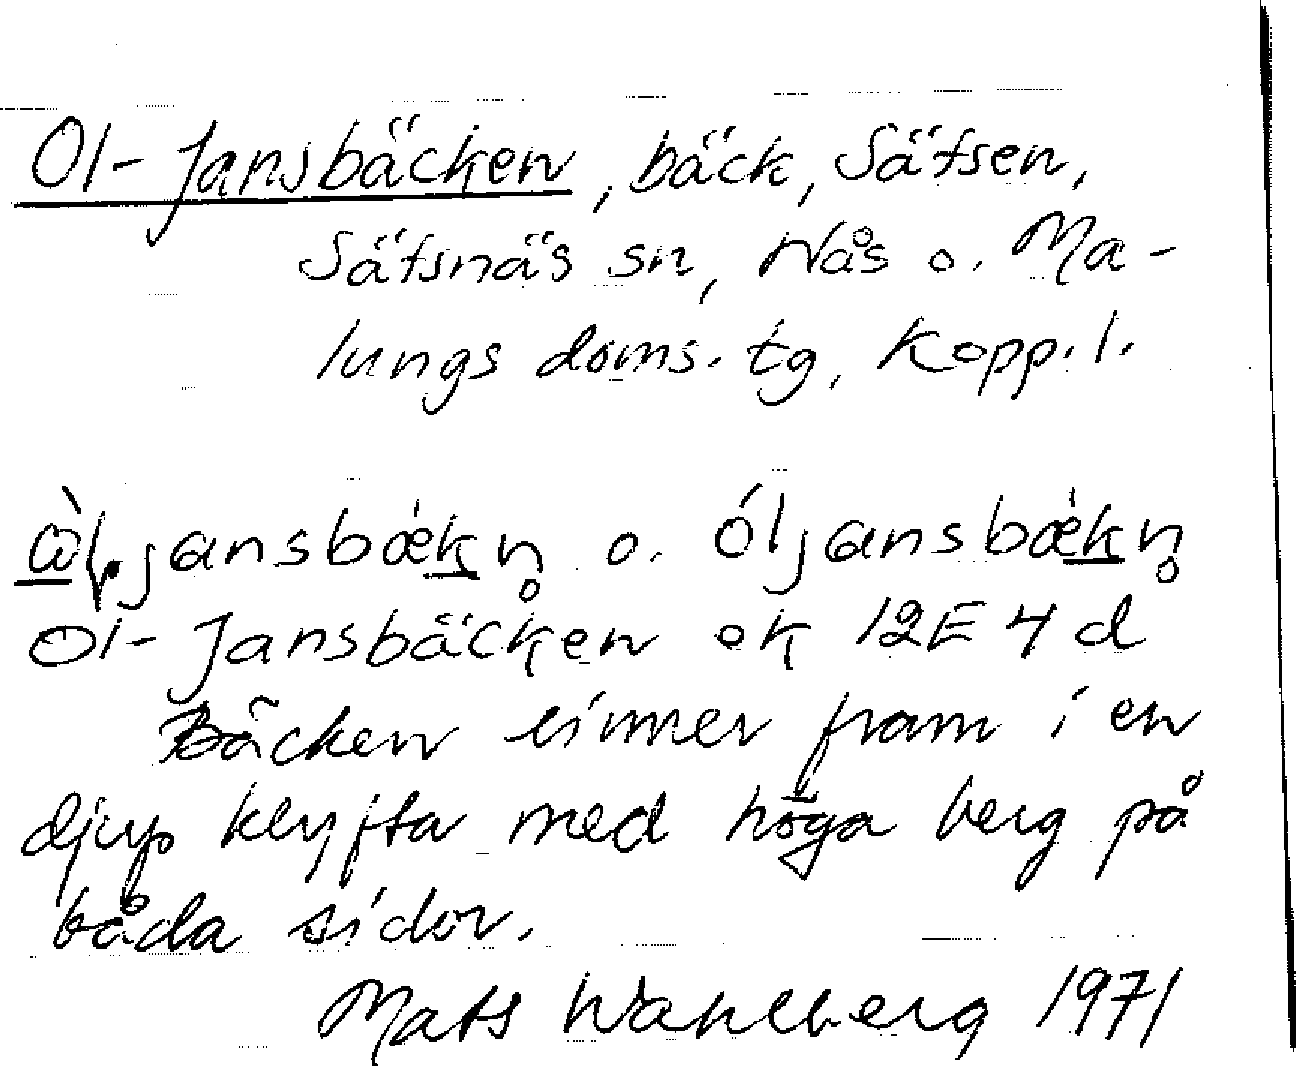 Ol-Jansbäcken, bäck, Säfsen,
Säfsnäs sn, Nås o. Ma-
lungs doms. tg, Kopp. l.
ɷ̀ḷjansbækn̥ o. óljansbækn̥
Ol-Jansbäcken ek 12E 4 d
Bäcken rinner fram i en
djup klyfta med höga berg på
båda sidor.
Mats Wahlberg 1971